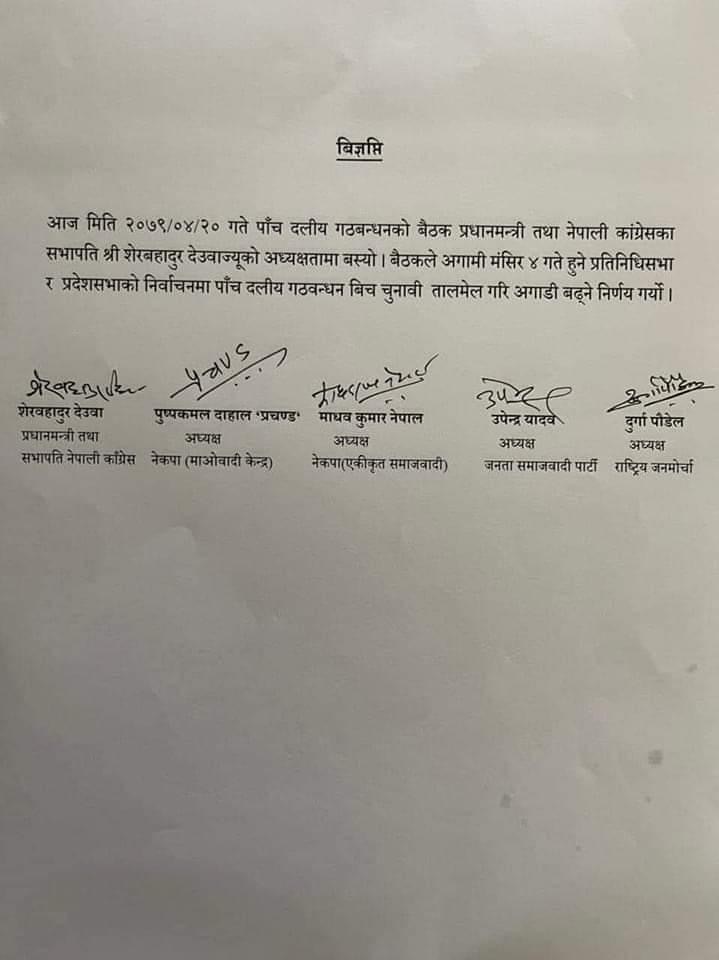 बिज्ञप्ति
आज मिति २०७९/०४/२० गते पाँच दलीय गठबन्धनको बैठक प्रधानमन्त्री तथा नेपाली कांग्रेसका
सभापति श्री शेरबहादुर देउवाज्यूको अध्यक्षतामा बस्यो । बैठकले अगामी मंसिर ४ गते हुने प्रतिनिधिसभा
र प्रदेशसभाको निर्वाचनमा पाँच दलीय गठवन्धन बिच चुनावी तालमेल गरि अगाडी बढ्ने निर्णय गर्यो ।
प्रचण्ड
शेरवहादुर देउवा पुष्पकमल दाहाल ‘प्रचण्ड‘ माधव कुमार नेपाल उपेन्द्र यादव दुर्गा पौडेल
प्रधानमन्त्री तथा अध्यक्ष अध्यक्ष अध्यक्ष अध्यक्ष
सभापति नेपाली काँग्रेस नेकपा (माओवादी केन्द्र) नेकपा(एकीकृत समाजवादी) जनता समाजवादी पार्टी राष्ट्रिय जनमोर्चा